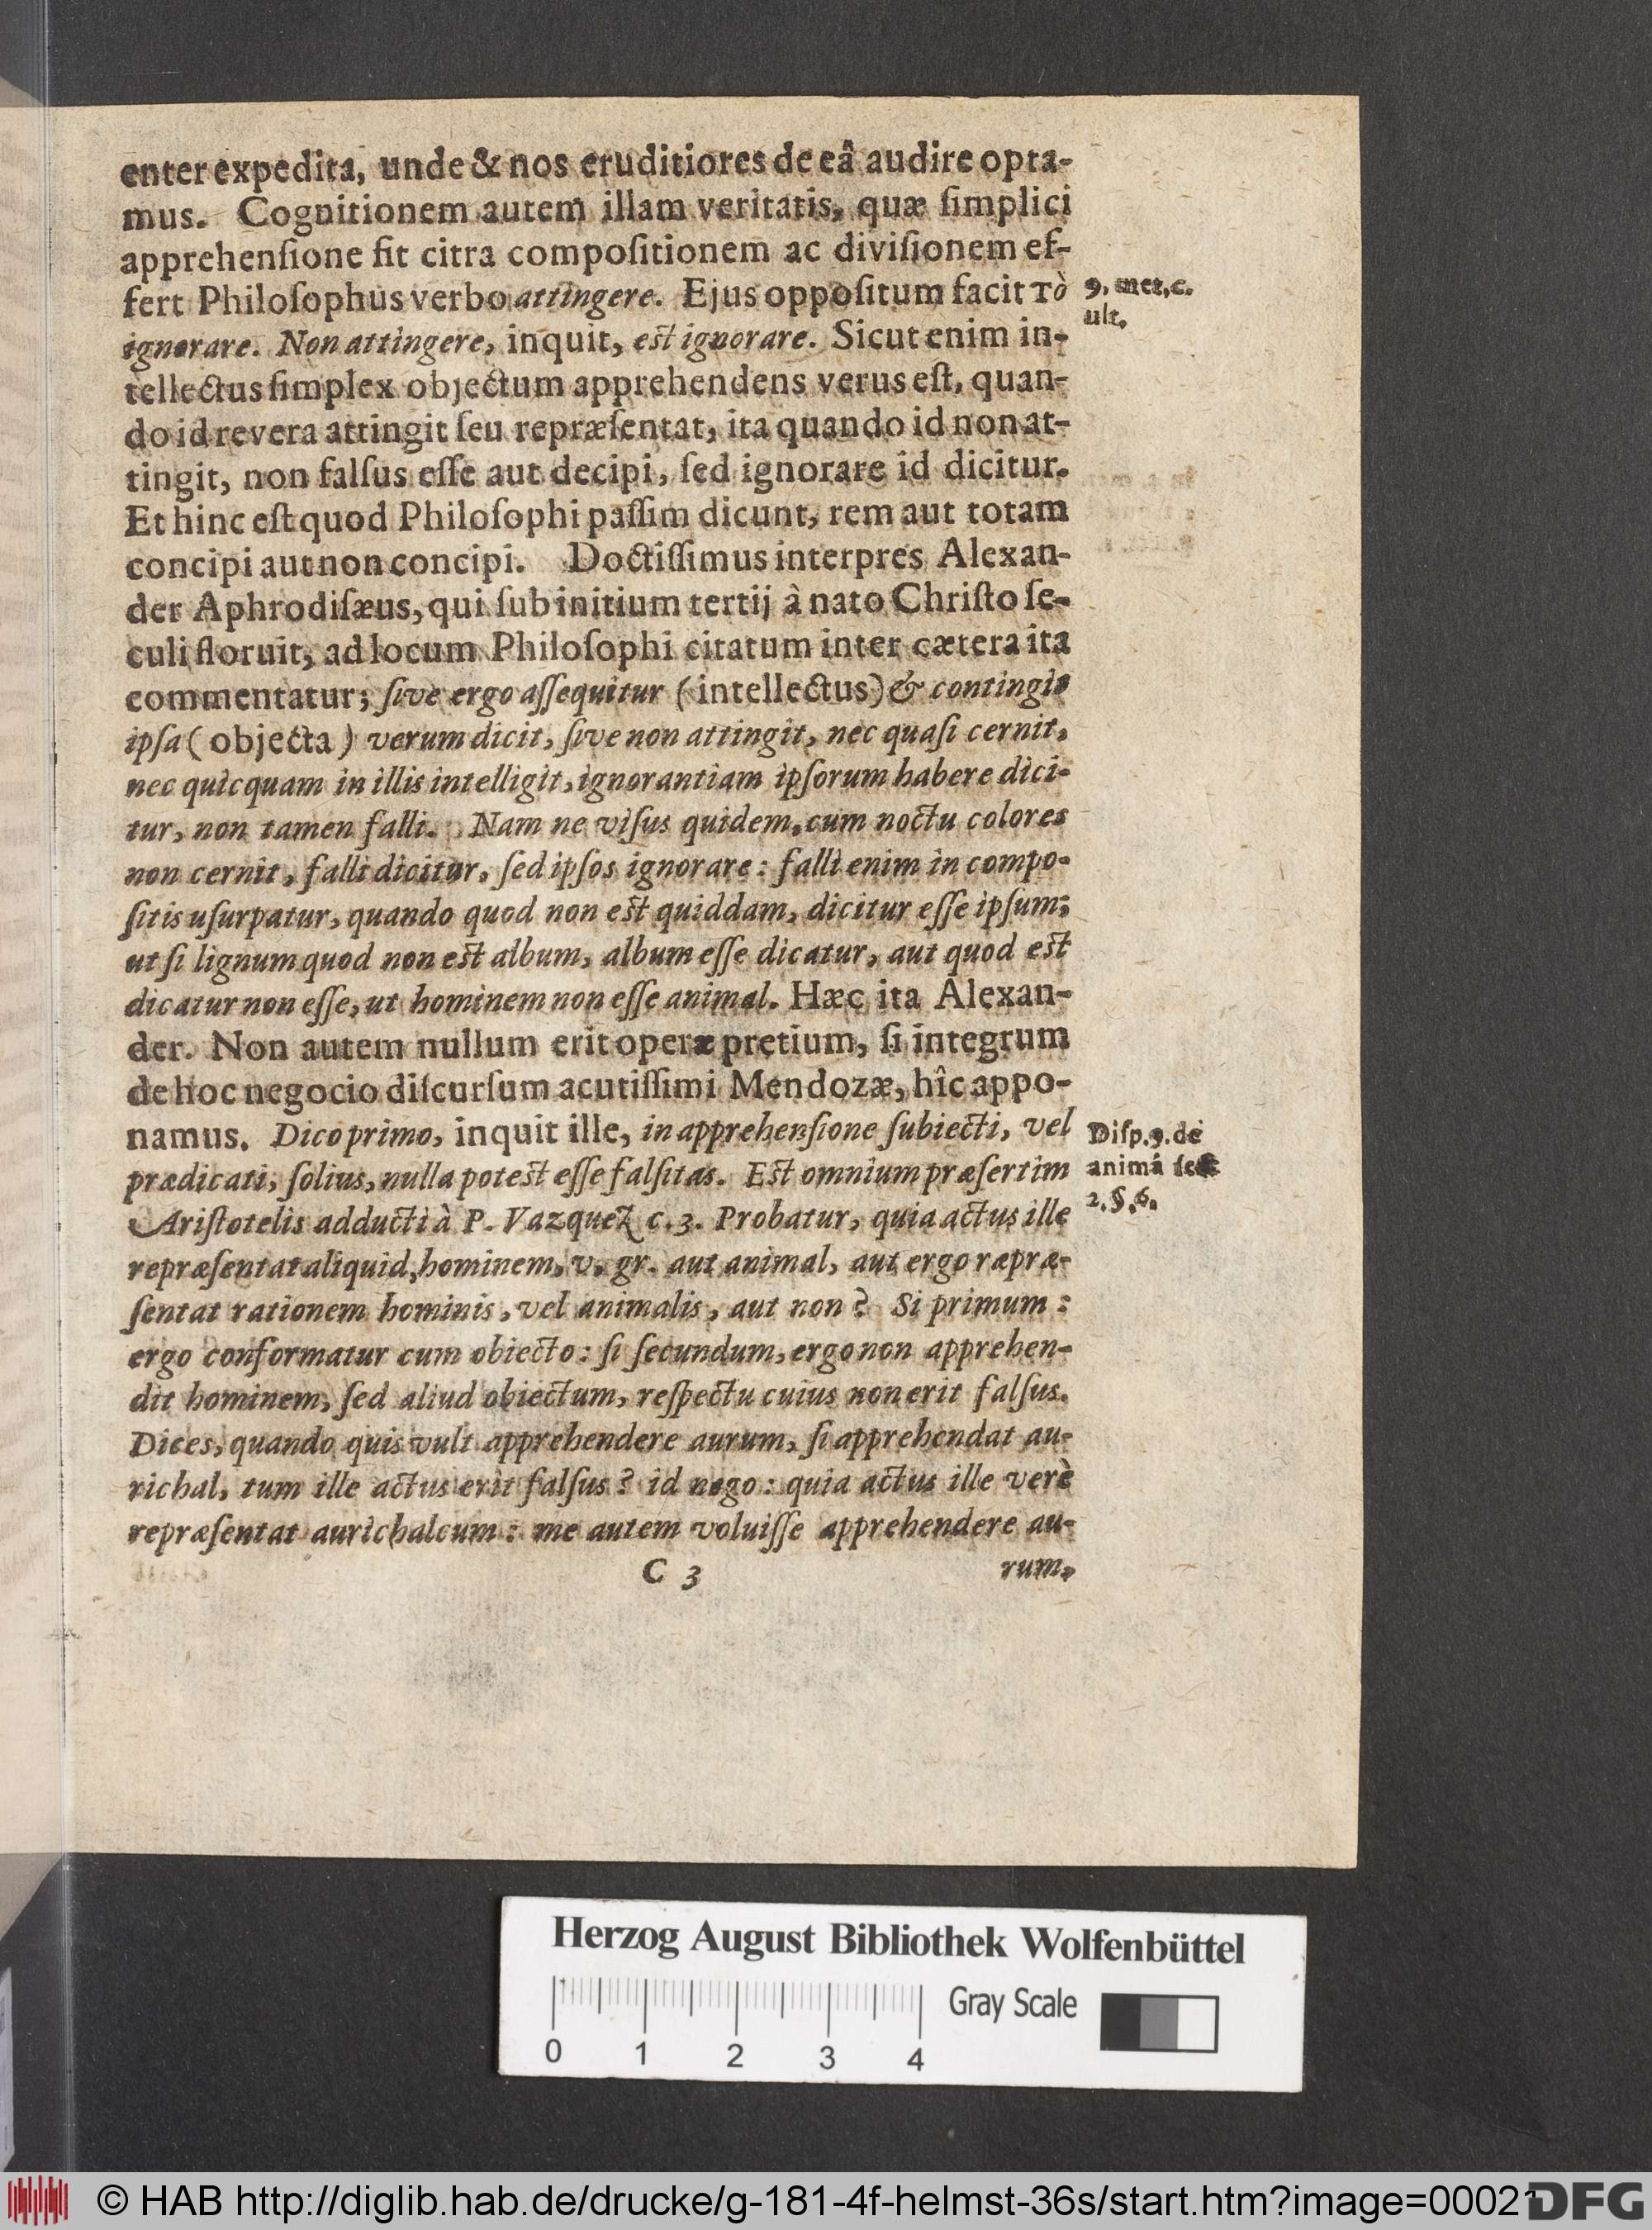 enter expedita, unde & nos eruditiores de eâ audire opta-
mus. Cognitionem autem illam veritatis, quæ ſimplici
apprehenſione fit citra compoſitionem ac diviſionem ef-
fert Philoſophus verbo attingere. Ejus oppoſitum facit τὸ
9. met. c.
ult.
ignorare. Non attingere, inquit, eſt ignorare. Sicut enim in-
tellectus ſimplex objectum apprehendens verus eſt, quan-
do id revera attingit ſeu repræſentat, ita quando id non at-
tingit, non falſus eſſe aut decipi, ſed ignorare id dicitur.
Et hinc eſt quod Philoſophi paſſim dicunt, rem aut totam
concipi aut non concipi. Doctiſſimus interpres Alexan-
der Aphrodiſæus, qui ſub initium tertij à nato Chriſto ſe-
culi floruit, ad locum Philoſophi citatum inter cætera ita
commentatur; ſive ergo aſſequitur (intellectus) & contingit
ipſa (objecta) verum dicit, ſive non attingit, nec quaſi cernit,
nec quicquam in illis intelligit, ignorantiam ipſorum habere dici-
tur, non tamen falli. Nam ne viſus quidem, cum noctu colores
non cernit, falli dicitur, ſed ipſos ignorare: falli enim in compo-
ſitis uſurpatur, quando quod non eſt quiddam, dicitur eſſe ipſum;
ut ſi lignum quod non eſt album, album eſſe dicatur, aut quod eſt
dicatur non eſſe, ut hominem non eſſe animal. Hæc ita Alexan-
der. Non autem nullum erit operæ pretium, ſi integrum
de hoc negocio diſcurſum acutiſſimi Mendozæ, hîc appo-
namus. Dico primo, inquit ille, in apprehenſione ſubiecti, vel
Diſp. 9. de
animá ſect
2. §. 6.
prædicati, ſolius, nulla poteſt eſſe falſitas. Eſt omnium præſertim
Ariſtotelis adducti à P. Vazquez c. 3. Probatur, quia actus ille
repræſentat aliquid, hominem, v. gr. aut animal, aut ergo repræ-
ſentat rationem hominis, vel animalis, aut non? Si primum:
ergo conformatur cum obiecto: ſi ſecundum, ergo non apprehen-
dit hominem, ſed aliud obiectum, reſpectu cuius non erit falſus.
Dices, quando quis vult apprehendere aurum, ſi apprehendat au-
richal, tum ille actus erit falſus? id nego: quia actus ille verè
repræſentat aurichalcum: me autem voluiſſe apprehendere au-
C 3
rum,
Herzog August Bibliothek Wolfenbüttel
0 1 2 3 4
Gray Scale
© HAB http://diglib.hab.de/drucke/g-181-4f-helmst-36s/start.htm?image=00021
DFG